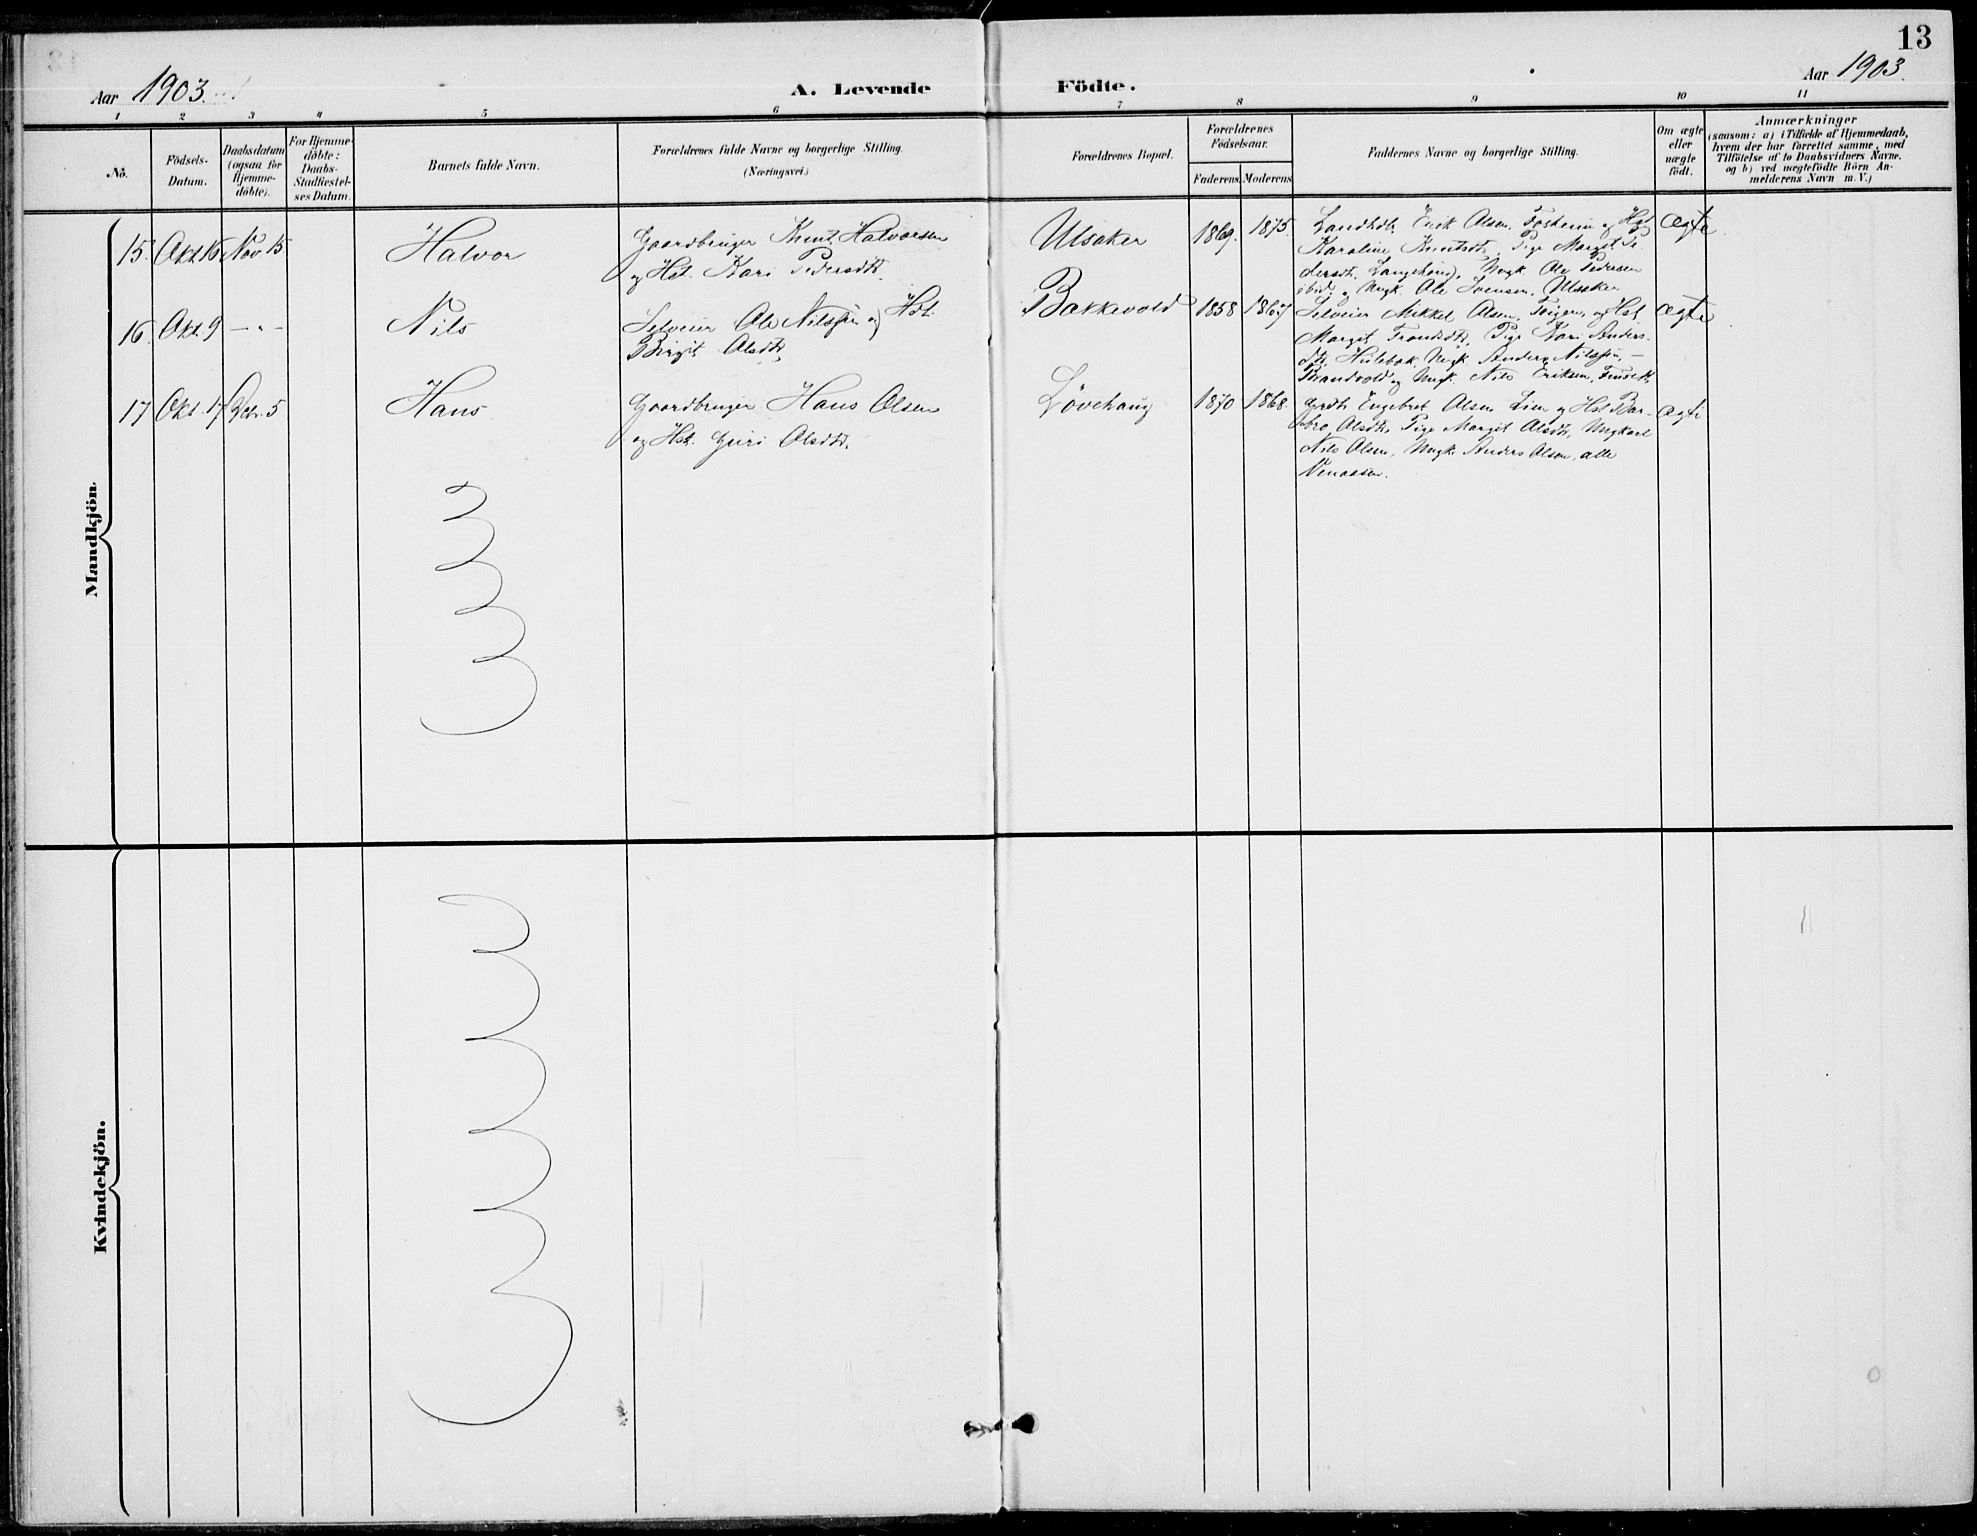 13
Aar 1903.
A. Levende Födte.
Aar 1903.
1 2 3 4 5 6 7 8 9 10 11
No.
Födsels-
Datum.
Daabsdatum
(ogsaa for
Hjemme-
döbte).
For Hjemme-
döbte:
Daabs-
Stadfæstel-
ses Datum.
Barnets fulde Navn.
Forældrenes fulde Navne og borgerlige Stilling.
(Næringsvei.)
Forældrenes Bopæl.
Forældrenes
Födselsaar.
Faderens. Moderens.
Faddernes Navne og borgerlige Stilling.
Om ægte
eller
uægte
födt.
Anmærkninger
(saasom: a) i Tilfælde af Hjemmedaab,
hvem der har forrettet samme, med
Tilföielse af to Daabsvidners Navne.
og b) ved uægtefödte Börn An-
melderens Navn m. V.)
Mandkjön.
15. Okt 16 Nov. 15 Halvor
Gaardbruger Knut Halvorsen
og Hst. Kari Pedersdtr.
Ulsaker 1869. 1875.
Erik Olsen, og Hst.
Karoline Knutsdtr, Pige Margit Pe
dersdtr. Langehaug, Ungk Ole Pedersen
ibid, og Ungk. Ole Svensen, Ulsaker
ægte
16. Okt. 9 — " — Nils
Selveier Ole Nilssen og Hst.
Birgit Olsdtr,
Bakkevold 1858 1867
Selveier Mikkel Olsen, og Hst
Margit Pige Kari Anders-
dtr, Hulebak, Ungk Anders Nilssen, —
Brandvold og Ungk. Nils Eriksen,
ægte
17 Okt. 17 Dcb. 5 Hans
Gaardbruger Hans Olsen
og Hst. Guri Olsdtr.
Løvehaug 1870 1868.
Engebret Olsen Lien og Hst Bar-
bro Olsdtr, Pige Margit Olsdtr, Ungkarl
Nils Olsen, Ungk. Anders Olsen, alle
Venaasen.
ægte
Kvindekjön.